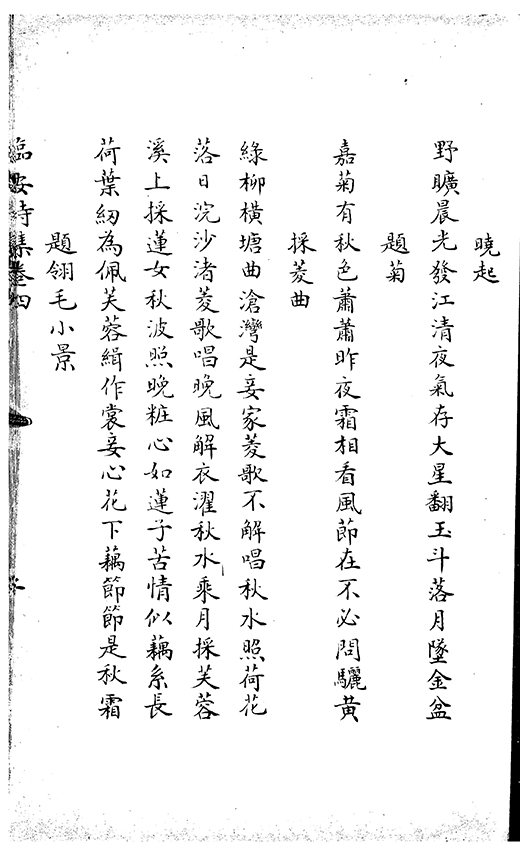 曉起
野曠晨光發江清夜氣存大星翻玉斗落月墜金盆
題菊
嘉菊有秋色蕭蕭昨夜霜相看風節在不必問驪黃
採菱曲
綠柳橫塘曲滄灣是妾家菱歌不解唱秋水照荷花
落日浣沙渚菱歌唱晚風解衣濯秋水乘月採芙蓉
溪上採蓮女秋波照晚粧心如蓮子苦情似藕糸長
荷葉紉為佩芙蓉緝作裳妾心花下藕節節是秋霜
題翎毛小景
臨安詩集卷四